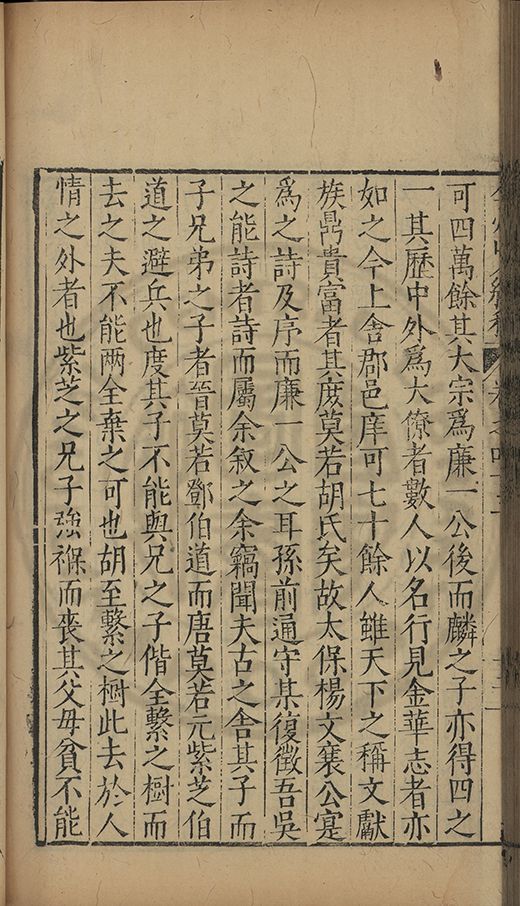 可四萬餘其大宗爲廉一公後而麟之子亦得四之
一其歷中外爲大僚者數人以名行見金華志者亦
如之今上舍郡邑庠可七十餘人雖天下之稱文獻
族鼎貴富者其度莫若胡氏矣故太保楊文襄公寔
爲之詩及序而廉一公之耳孫前通守某復徵吾吳
之能詩者詩而屬余敘之余竊聞夫古之舍其子而
子兄弟之子者晉莫若鄧伯道而唐莫若元紫芝伯
道之避兵也度其子不能與兄之子偕全繫之樹而
去之夫不能兩全棄之可也胡至繫之樹此去於人
情之外者也紫芝之兄子強褓而喪其父母貧不能